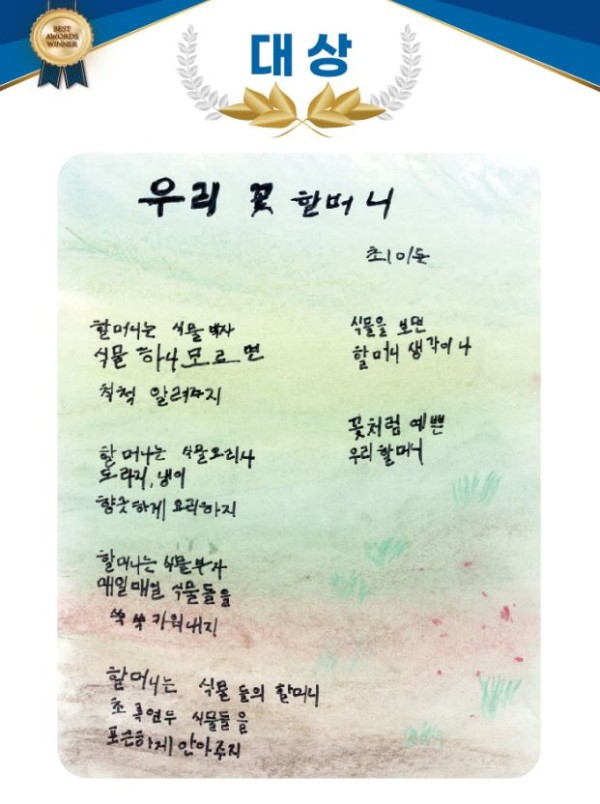 BEST
AWORDS
WINNER
대상
우리 꽃 할머니
최이든
할머니는 식물 박사
식물 하나 모르면
척척 알려주지
할머니는 식물요리사
도라지, 냉이
향긋하게 요리하지
할머니는 식물부자
매일매일 식물들을
쑥쑥 키워내지
할머니는 식물 들의 할머니
초록연두 식물들을
포근하게 안아주지
식물을 보면
할머니 생각이 나
꽃처럼 예쁜
우리 할머니